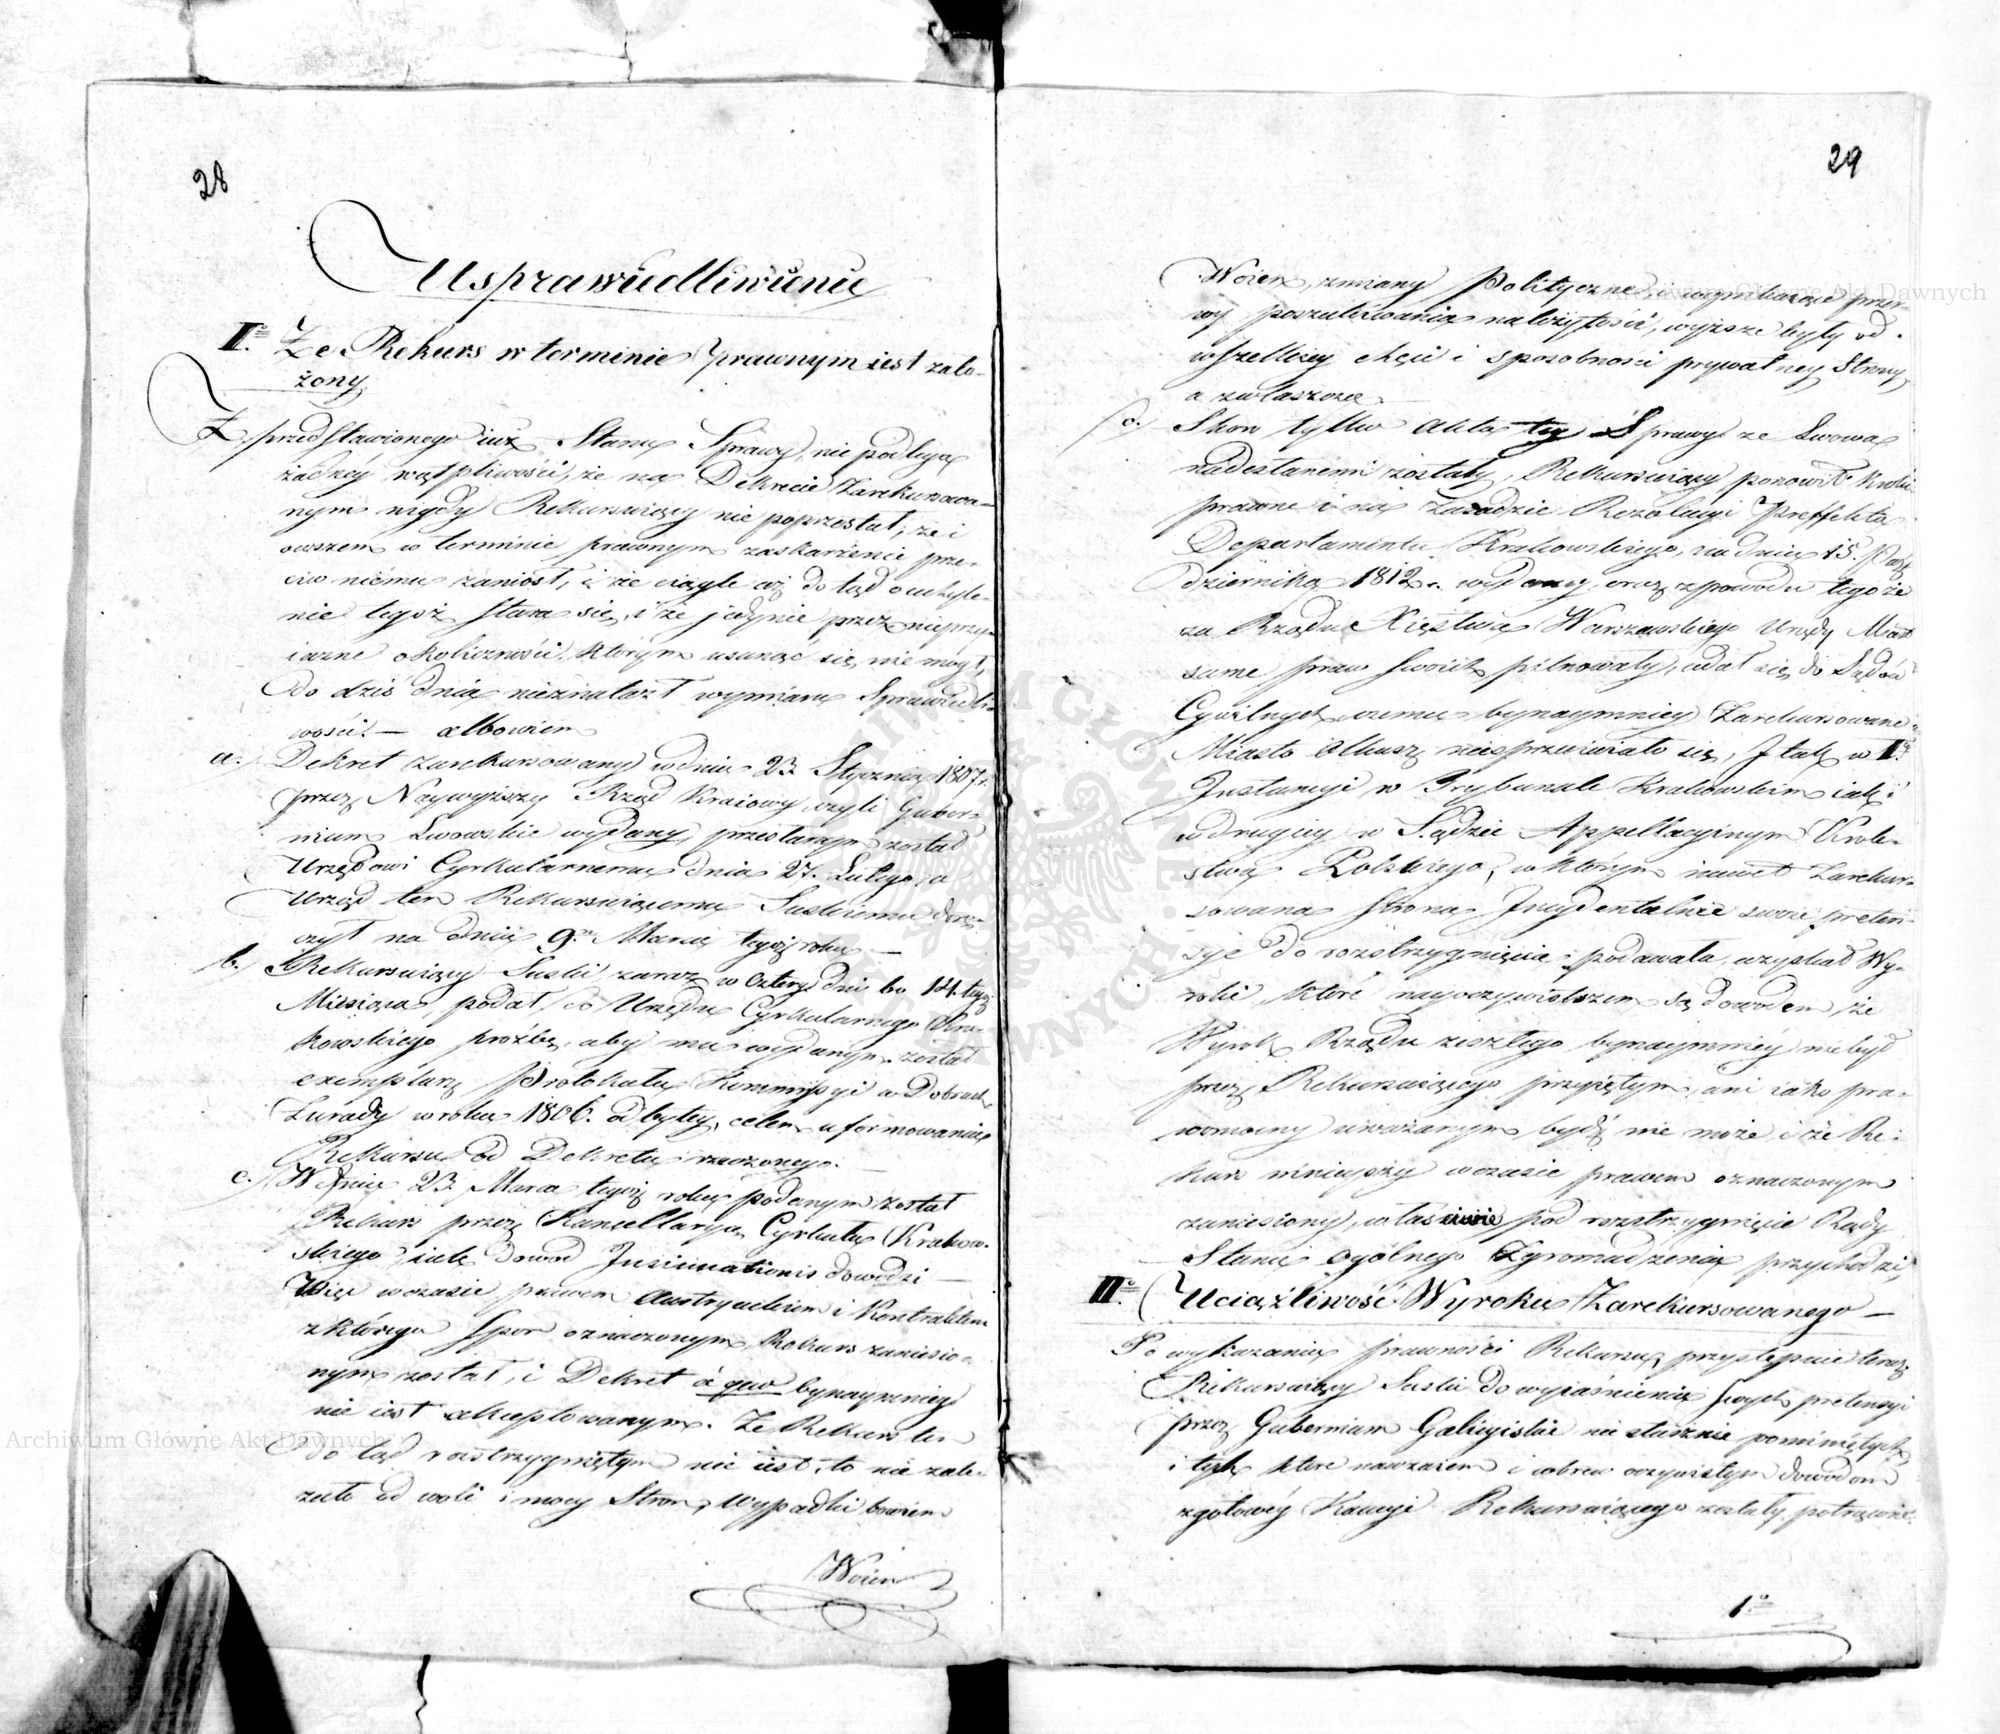 28
Usprawiedliwienie
I.o Że Rekurs w terminie prawnym iest zało-
żony
Z przedstawionego iuż Stanu Sprawy, nie podlega
żadnéy wątpliwości, że na Dekrecie zarekursowa-
nym nigdy Rekursuiący nie poprzestał, że i
owszem w terminie prawnym zaskarżenie prze-
ciw niému zaniósł, i że ciągle aż do tąd o uchyle-
nie tegoż stara się, i że jedynie przez nieprzy-
iazne okoliczności, którym usunąć się nie mógł,
do dziś dnia nieznalazł wymiaru Sprawiedli-
wości. — albowiem
a. Dekret zarekursowany w dniu 23 Stycznia 1807 r.
przez Naywyższy Rząd Kraiowy czyli Guber-
nium Lwowskie wydany, przesłanym został
Urzędowi Cyrkularnemu dnia 27. Lutego, a
Urząd ten Rekursuiącemu Suskiemu dorę-
czył na dniu 9. Marca tegoż roku —
b. Rekursuiący Suski zaraz w cztery dni bo 14. tegoż
Miesiąca, podał do Urzędu Cyrkularnego Kra-
kowskiego proźbę, aby mu wydanym został
exemplarz Protokułu Kommissyi w Dobrach
Żurady w roku 1806. odbytey, celem uformowania
Rekursu od Dekretu rzeczonego. —
c. W dniu 23 Marca tegoż roku podanym został
Rekurs przez Kancellaryą Cyrkułu Krakow-
skiego iak dowod Insinuationis dowodzi —
Więc w czasie prawem Austryackiem i Kontraktem
z którego spor oznaczonym, Rekurs zaniesio-
nym został, i Dekret à quo bynaymniey
nie iest akceptowanym. Że Rekurs ten
do tąd rozstrzygniętym nie iest, to nie zale-
żało od woli i mocy Stron, wypadki bowiem
Woien
29
Woien, zmiany Polityczne i wynikaiące przer-
wy poszukiwania należytości, wyższe były od
wszelkiey chęci i sposobności prywatney Strony,
a zwłaszcza
Skoro tylko Akta tey Sprawy ze Lwowa
nadesłanemi zostały, Rekursuiący ponowił kroki
prawne i na zasadzie Rezolucyi Preffekta
Departamentu Krakowskiego, na dniu 15. Paź-
dziernika 1812 r. wydaney, oraz z powodu tego że
za Rządu Xięstwa Warszawskiego Urzędy Miast
same praw swoich pilnowały, udał się do Sądów
Cywilnych, czemu bynaymniey Zarekursowane
Miasto Olkusz niesprzeciwiało się, I tak w I.
Instancyi w Trybunale Krakowskim iak i
w drugiey w Sądzie Appellacyinym Króle-
stwa Polskiego, w którym nawet Zarekur-
sowana Strona Incydentalnie swoie preten-
sye do rozstrzygnięcia podawała, uzyskał Wy-
roki, które nayoczywistszem są dowodem, że
Wyrok Rządu zeszłego bynaymniéy nie był
przez Rekursuiącego przyiętym, ani iako pra-
womocny uważanym bydź nie może, i że Re-
kurs ninieyszy w czasie prawem oznaczonym
zaniesiony, właściwie pod rozstrzygnięcie Rady
Stanu ogólnego Zgromadzenia przychodzi,
II.o Uciążliwość Wyroku Zarekursowanego —
Po wykazaniu prawności Rekursu, przystępuie teraz
Rekursuiący Suski do wyiaśnienia swych pretensyi
przez Gubernium Galicyiskie nie słusznie pominiętych
i tych które nawzaiem i wbrew oczywistym dowodom
z gotowéy Kaucyi Rekursuiącego zostały potrącone.
1.o
Archiwum Główne Akt Dawnych
Archiwum Główne Akt Dawnych